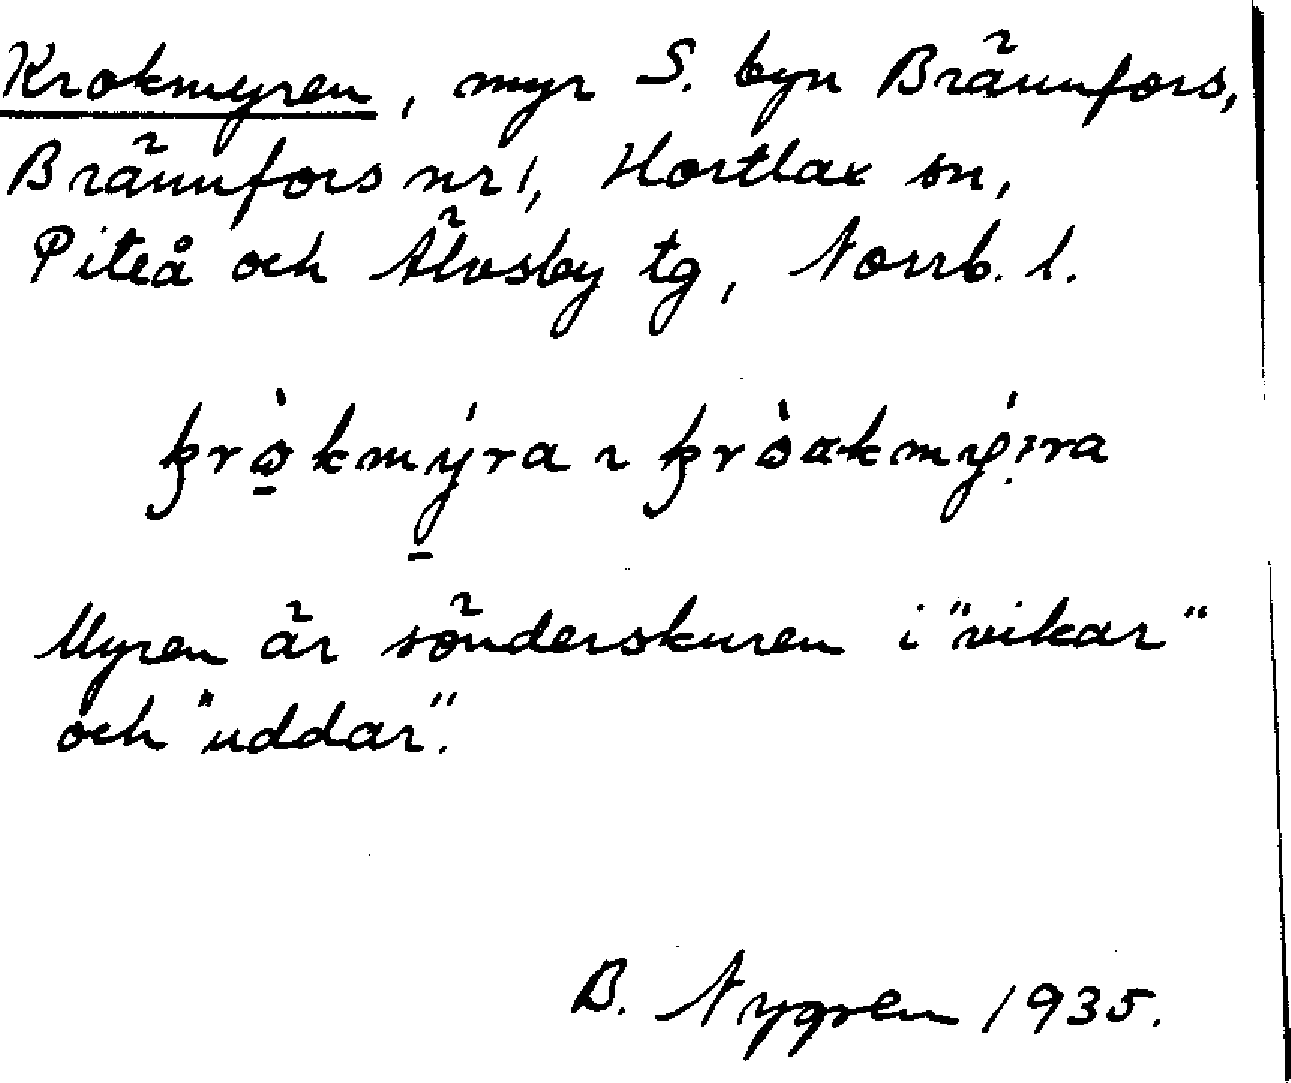 Krokmyren, myr S. byn Brännfors,
Brännfors nr 1, Hortlax sn,
Piteå och Älvsby tg, Norrb. l.
Myren är sönderskuren i "vikar"
och "uddar".
B. Nygren 1935.